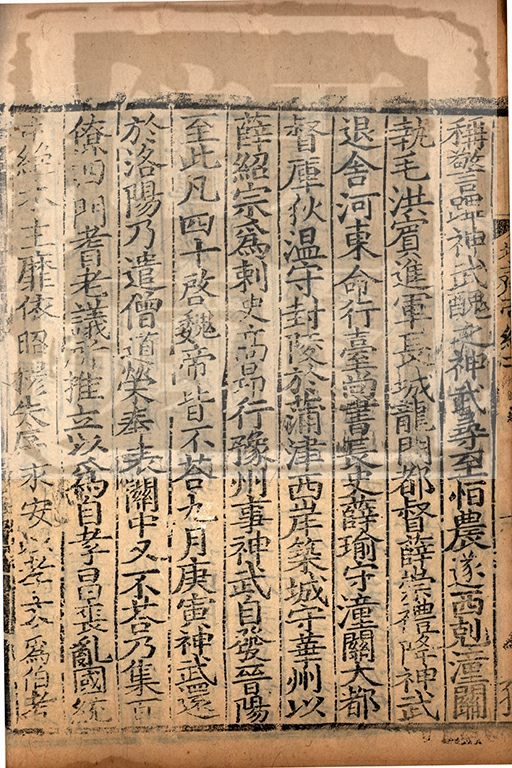 稱警蹕神武醜之神武尋至恒農遂西剋潼關
執毛洪賔進軍長城龍門都督薛崇禮降神武
退舍河東命行臺尚書長史薛瑜守潼關大都
督厙狄温守封陵於蒲津西岸築城守華州以
薛紹宗爲刺史高昂行豫州事神武自發晉陽
至此凡四十啓魏帝皆不荅九月庚寅神武還
於洛陽乃遣僧道榮奉表關中又不荅乃集百
僚四門耆老議所推立以爲自孝昌喪亂國統
中絶不主靡依昭穆失序永安以孝文爲伯考